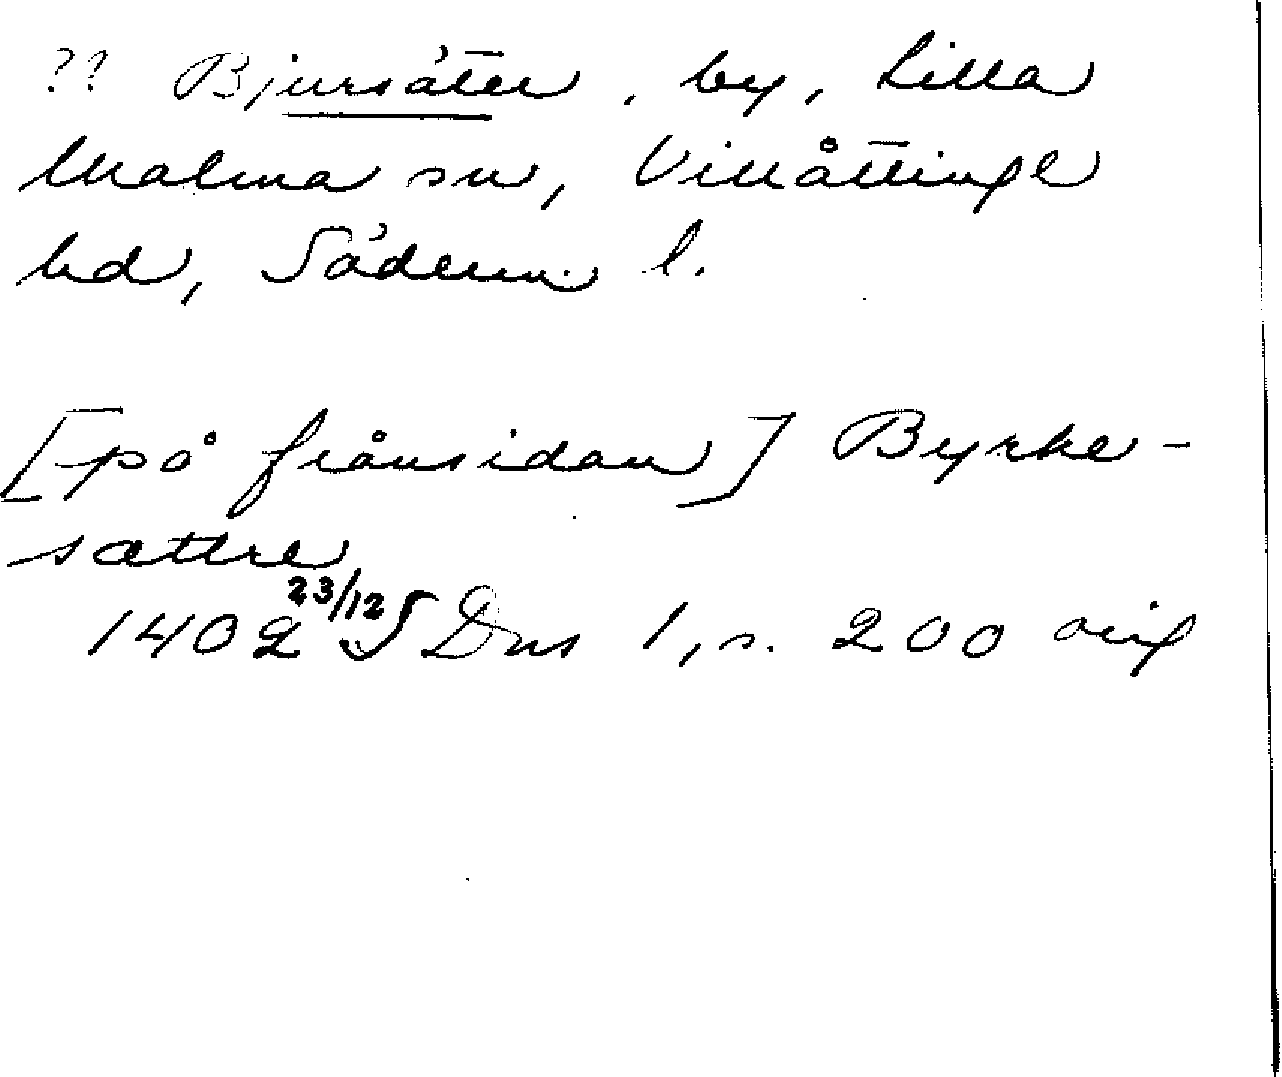 ?? Bjursäter, by, Lilla
Malma sn, Villåttinge
hd, Söderm. l.
[på frånsidan] Byrke-
sættre
1402 23/12 SDns 1, s. 200 orig